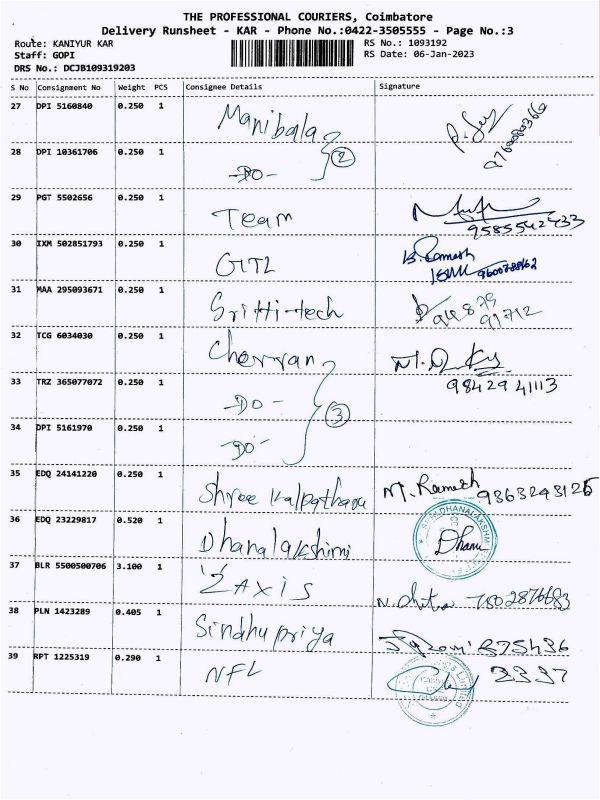 THE PROFESSIONAL COURIERS, Coimbatore
Delivery Runsheet - KAR - Phone No.:0422-3505555 - Page No.:3
Route: KANIYUR KAR RS No.: 1093192
Staff: GOPI RS Date: 06-Jan-2023
DRS No.: DCJB109319203
S No Consignment No Weight PCS Consignee Details Signature
27 DPI 5160840 0.250 1 Manibala
28 DPI 10361706 0.250 1 -DO- 2
29 PGT 5502656 0.250 1 Team 9585542433
30 IXM 502851793 0.250 1 GITL B. Ramesh
31 MAA 295093671 0.250 1 Sritti-tech
32 TCG 6034030 0.250 1 Cherran
33 TRZ 365077072 0.250 1 -DO- 3 98429 41113
34 DPI 5161970 0.250 1 -DO-
35 EDQ 24141220 0.250 1 Shree Kalpatharu M. Ramesh 9363243125
36 EDQ 23229817 0.520 1 Dhanalakshimi Dhanu
37 BLR 5500500706 3.100 1 'Z' AXIS
38 PLN 1423289 0.405 1 Sindhupriya 875436
39 RPT 1225319 0.290 1 NFL 2337